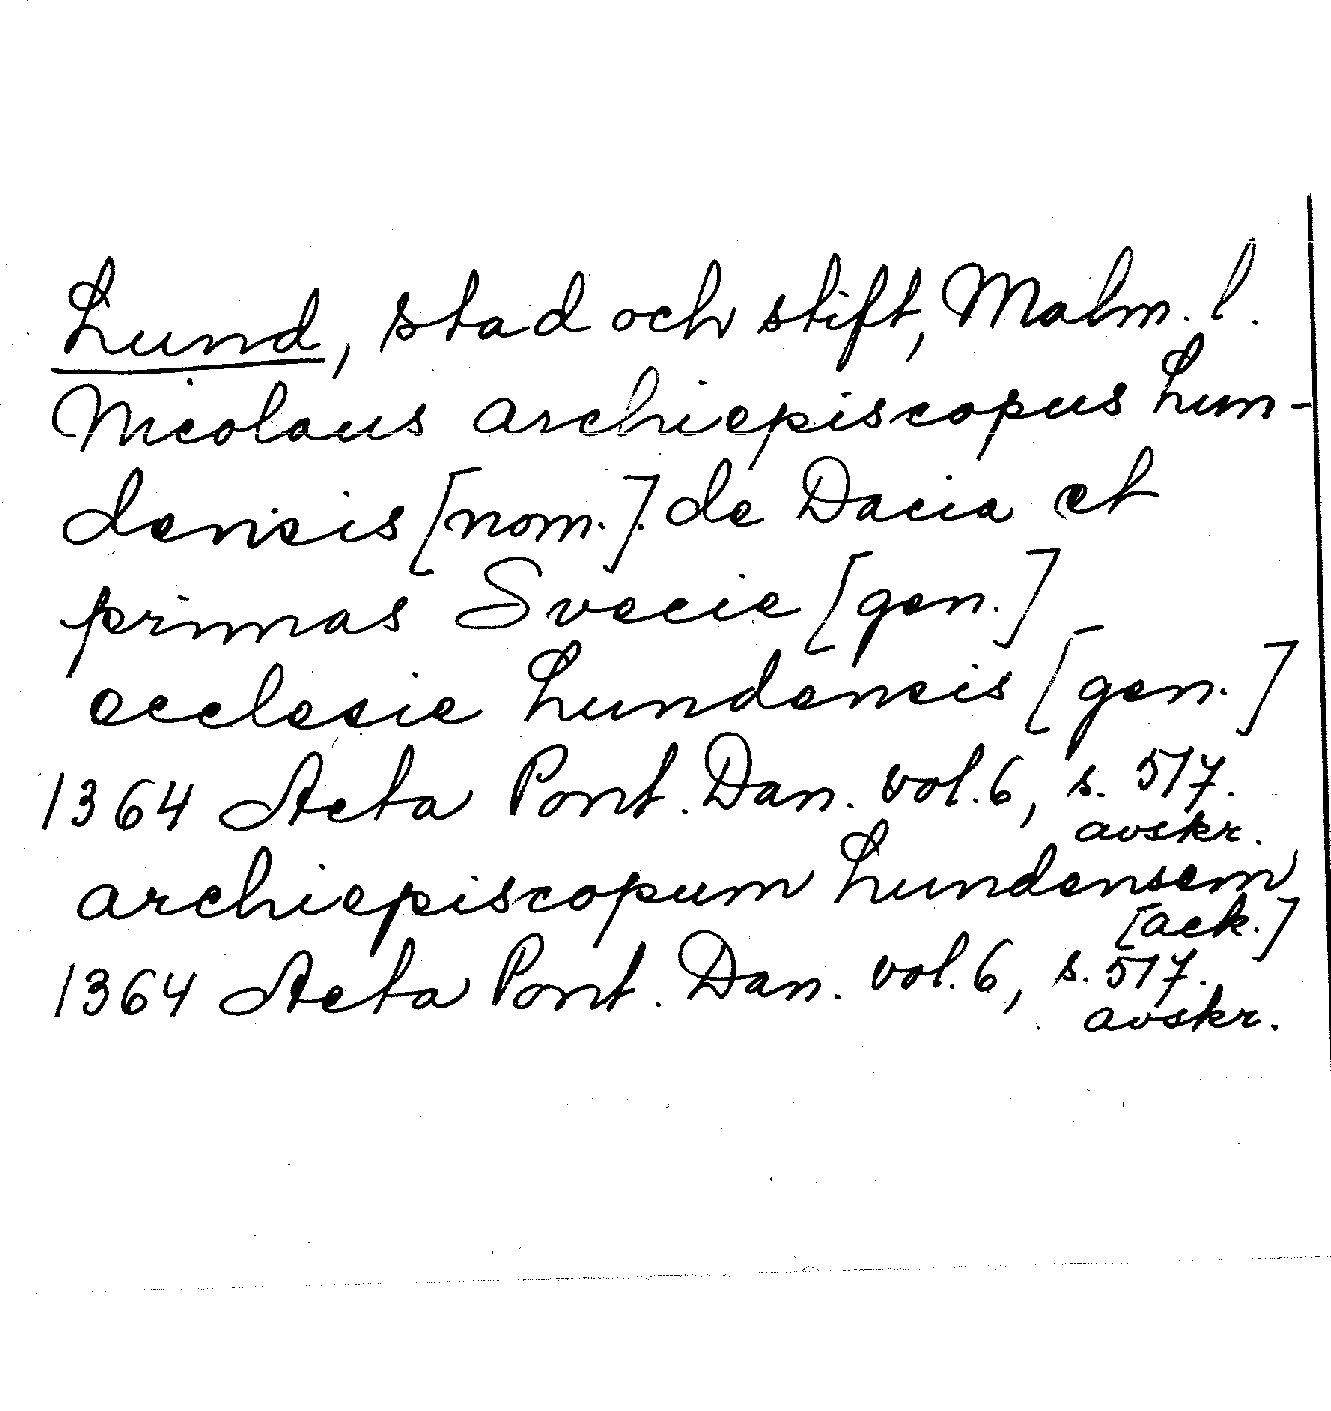 Lund, stad och stift, Malm. l.
Nicolaus archiepiscopus Lun-
densis [nom.] de Dacia et
primas Svecie [gen.]
ecclesie Lundensis [gen.]
1364 Acta Pont. Dan. vol. 6, s. 517.
avskr.
archiepiscopum Lundensem
[ack.]
1364 Acta Pont. Dan. vol. 6, s. 517.
avskr.